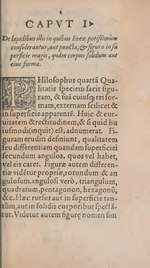 CAPVT I
De lapidibus illis in quibus lineæ potissimùm
considerantur, aut puncta, & figura in su
perficie magis, quàm corpus solidum aut
eius forma.
PHilosophus quartâ Qua-
litatis speciem facit figu-
ram, & suâ cuiusque for-
mam, externam scilicet &
in superficie apparentē. Huic & cur-
uitatem & rectitudinem, & si quid hu
iusmodi (inquit) est, adnumerat. Fi-
guram eruditi definiunt, qualitatem
seu differentiam quandam superficiei
secundum angulos, quos vel habet,
vel eis caret. Figuræ autem differentiæ
videntur proximæ, rotundum & an
gulosum, angulosi verò, triangulum,
quadratum, pentagonon, hexagonō,
&c. Hæc rursus aut in superficie tan-
tum, aut in solidis corporibus specta
tur. Videtur autem figuræ nomen non